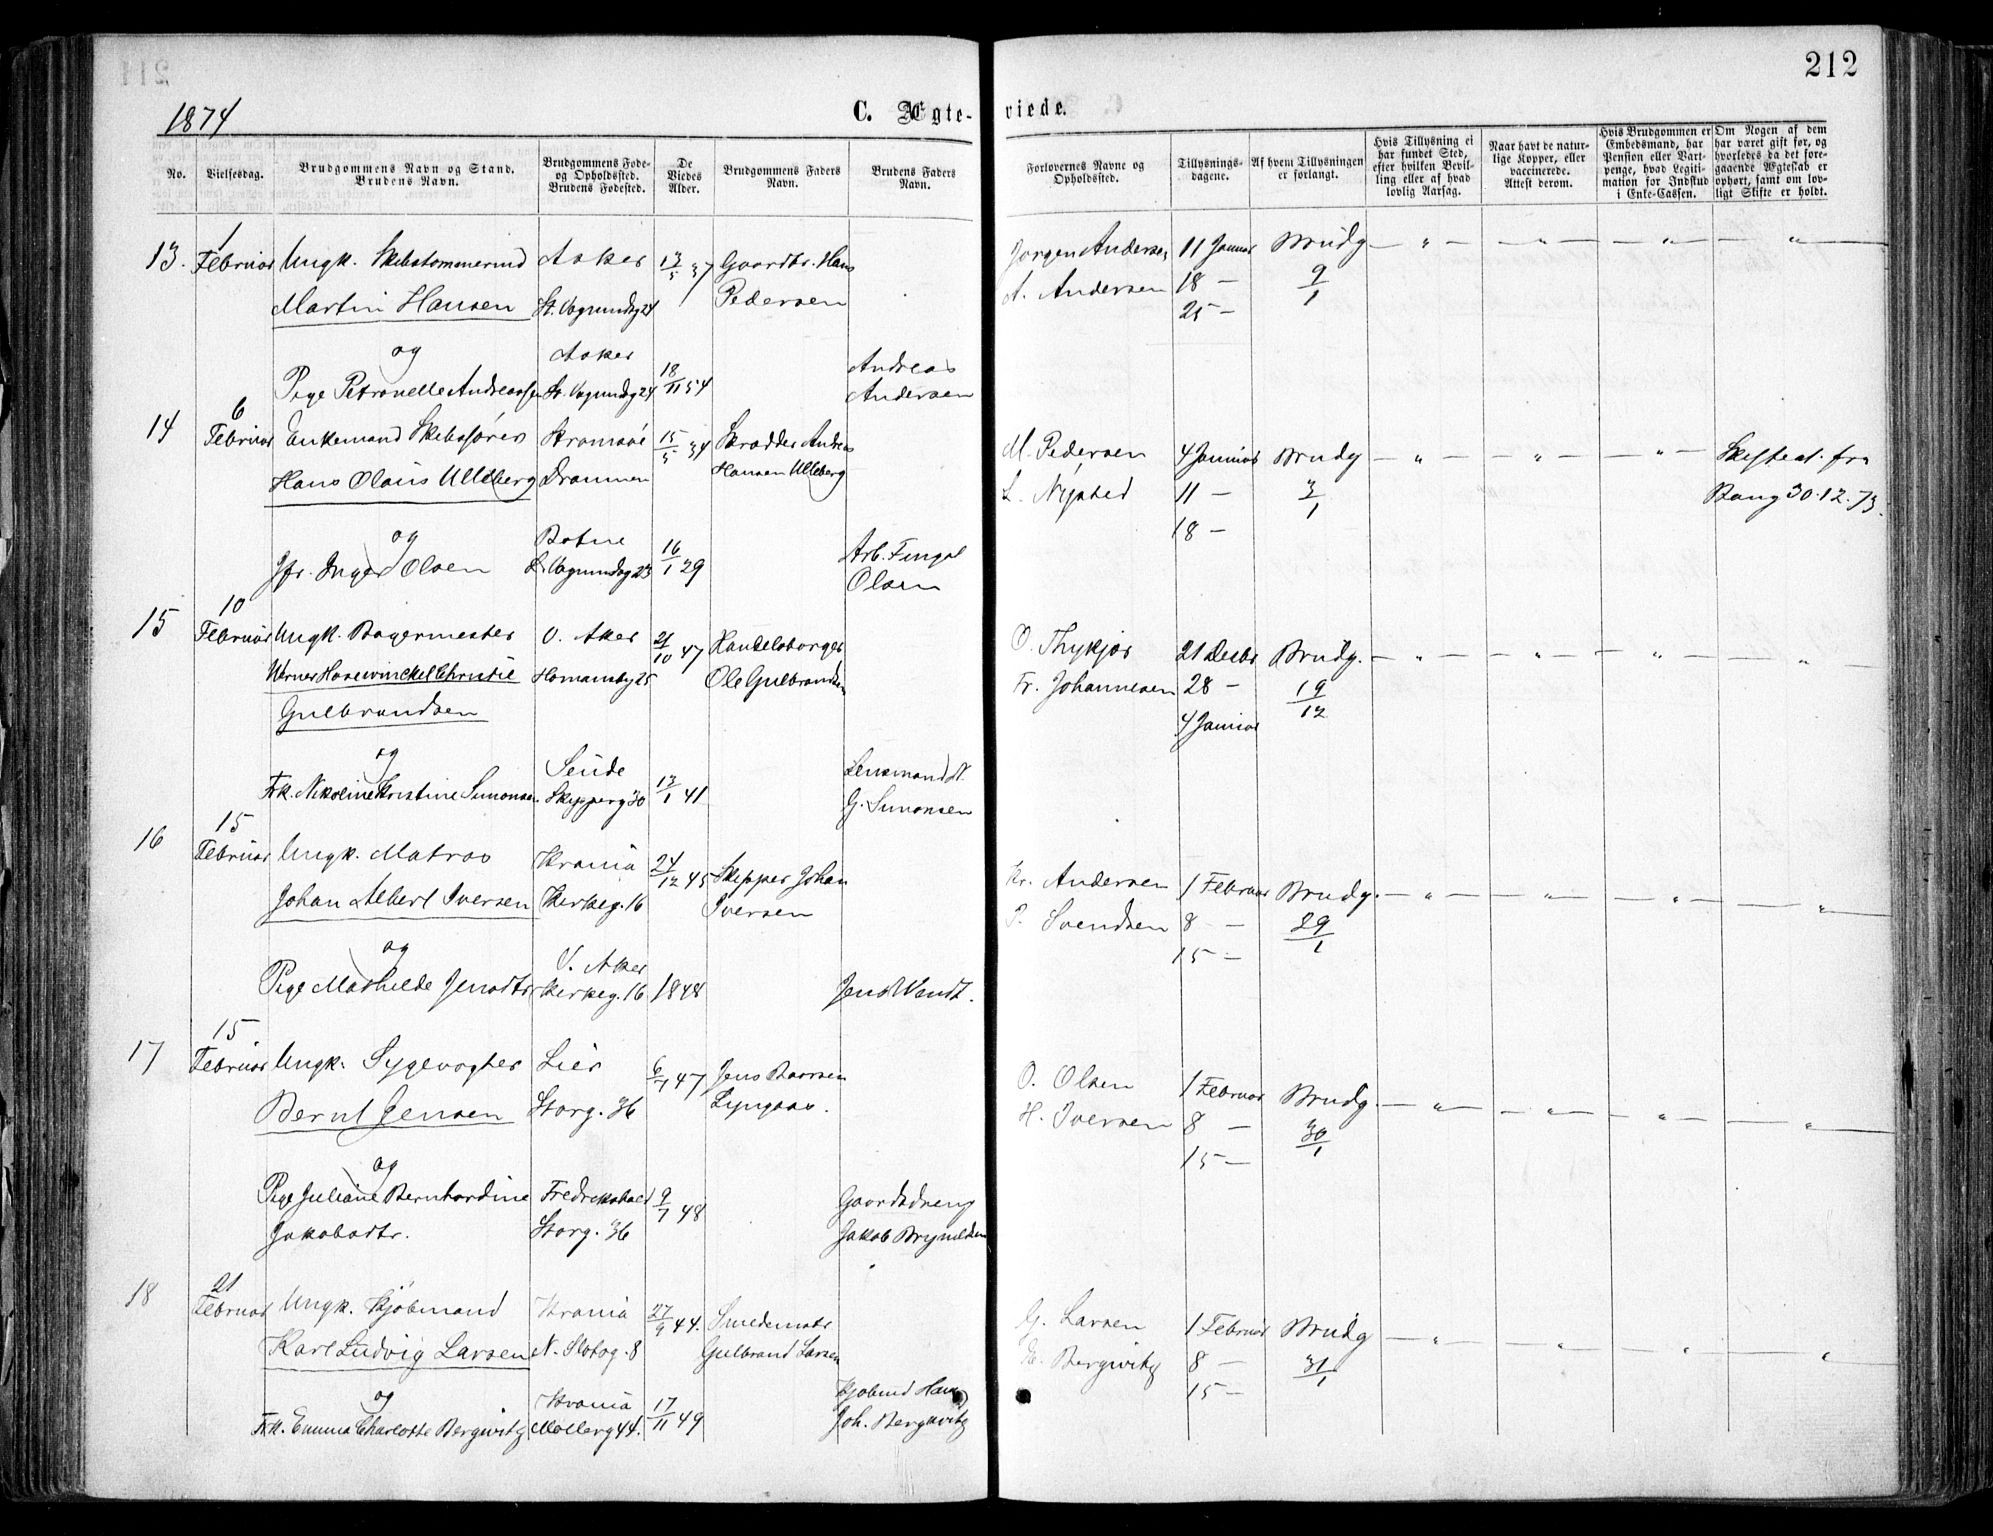 212
1874
C. Ægte-
viede.
No.
Vielsesdag.
Brudgommens Navn og Stand.
Brudens Navn.
Brudgommens Føde-
og Opholdssted.
Brudens Fødested.
De
Viedes
Alder.
Brudgommens Faders
Navn.
Brudens Faders
Navn.
Forlovernes Navne og
Opholdssted.
Tillysnings-
dagene.
Af hvem Tillysningen
er forlangt.
Hvis Tillysning ei
har fundet Sted,
efter hvilken Bevil-
ling eller af hvad
lovlig Aarsag.
Naar havt de natur-
lige Kopper, eller
vaccinerede.
Attest derom.
Hvis Brudgommen er
Embedsmand, har
Pension eller Vart-
penge, hvad Legiti-
mation for Indskud
i Enke-Cassen.
Om Nogen af dem
har været gift før, og
hvorledes da det fore-
gaaende Ægteskab er
ophørt, samt om lov-
ligt Skifte er holdt.
13. 1 Februar Ungk. Skibstømmermd Asker 13/5 37 Gaardbr. Hans
Martin Hansen St. Vognmdsg 24 Pedersen
og Asker
Pige Petronelle Andreassen St. Vognmdsg 24 18/11 54 Andreas
Andersen
Jørgen Andersen 11 Januar Brudg — " — — " — — " — "
A. Andersen 18 — 9/1
25 —
14 6 Februar Enkemand Skibsfører Strømsøe 15/5 34 Skrædder Andreas
Hans Olaus Ulleberg Drammen Hansen Ulleberg
og Botne
Jfr. Inger Olsen L. Vognmdsg 23 16/1 29 Arb. Fingal
Olsen
M. Pedersen 4 Januar Brudg — " — — " — — " — Skifteat. fra
L. Nysted 11 — 3/1 Bang 30.12.73.
18 —
15 10 Februar Ungk. Bagermester V. Aker 21/10 47 Handelsborger
Werner Hosewinckel Christie Homansby 25 Ole Gulbrandsen
Gulbrandsen
og Seude
Frk. Nikoline Kristine Simonsen Skipperg 30 13/1 41 Lensmand N.
G. Simonsen
O. Thykjør 21 Decbr Brudg. — " — — " — — " — "
Fr. Johannesen 28 — 19/12
4 Januar
16 15 Februar Ungk. Matros Krania 24/12 45 Skipper Johan
Johan Albert Iversen Kirkeg. 16 Iversen
og V. Aker
Pige Mathilde Jensdtr Kirkeg. 16 1848 Jens Wendt.
Kr. Andersen 1 Februar Brudg. — " — — " — — " — "
P. Svendsen 8 — 29/1
15 —
17 15 Februar Ungk. Sygevogter Lier 6/7 47 Jens Baarsen
Bernt Jensen Storg. 36 Lyngaas.
og
Pige Juliane Bernhardine Fredrikshald 9/7 48 Gaardsdreng
Jakobsdtr. Storg. 36 Jakob Brynildsen
O. Olsen 1 Februar Brudg. — " — — " — — " — "
H. Iversen 8 — 30/1
15 —
18 21 Februar Ungk. Kjøbmand Krania 27/9 44. Smedemstr
Karl Ludvig Larsen N. Slotsg. 8 Gulbrand Larsen
og Krania
Frk. Emma Charlotte Bergwitz Møllerg 44. 17/11 49 Kjøbmd Hans
Joh. Bergwitz
G. Larsen 1 Februar Brudg — " — — " — — " — "
Bergwitz 8 — 31/1
15 —